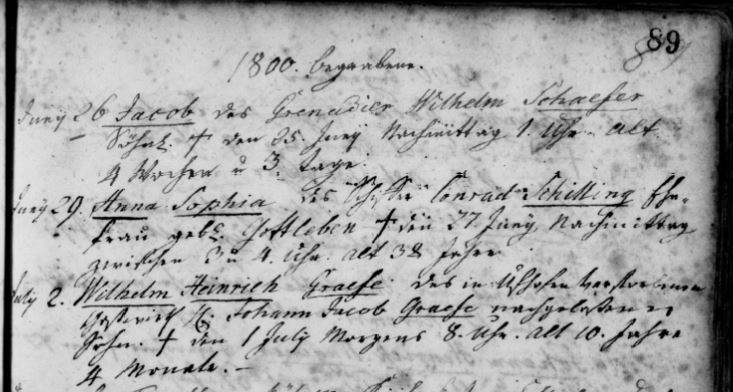 89
1800. begrabene.
Juny 26 Jacob des Grenadier Wilhelm Schaefer
Söhnl. † den 25. Juny Nachmittag 1. Uhr. alt
4 Wochen u 3. Tage.
Juny 29. Anna Sophia des Conrad Schilling Ehe-
frau geb. Gottleben † den 27 Juny, Nachmittag
zwischen 3 u 4. Uhr. alt 38 Jahre
July 2. Wilhelm Heinrich Graefe des in verstorbenen
Johann Jacob Graefe nachgelassener
Sohn. † den 1 July Morgens 8. Uhr. alt 10. Jahre
4 Monate. –